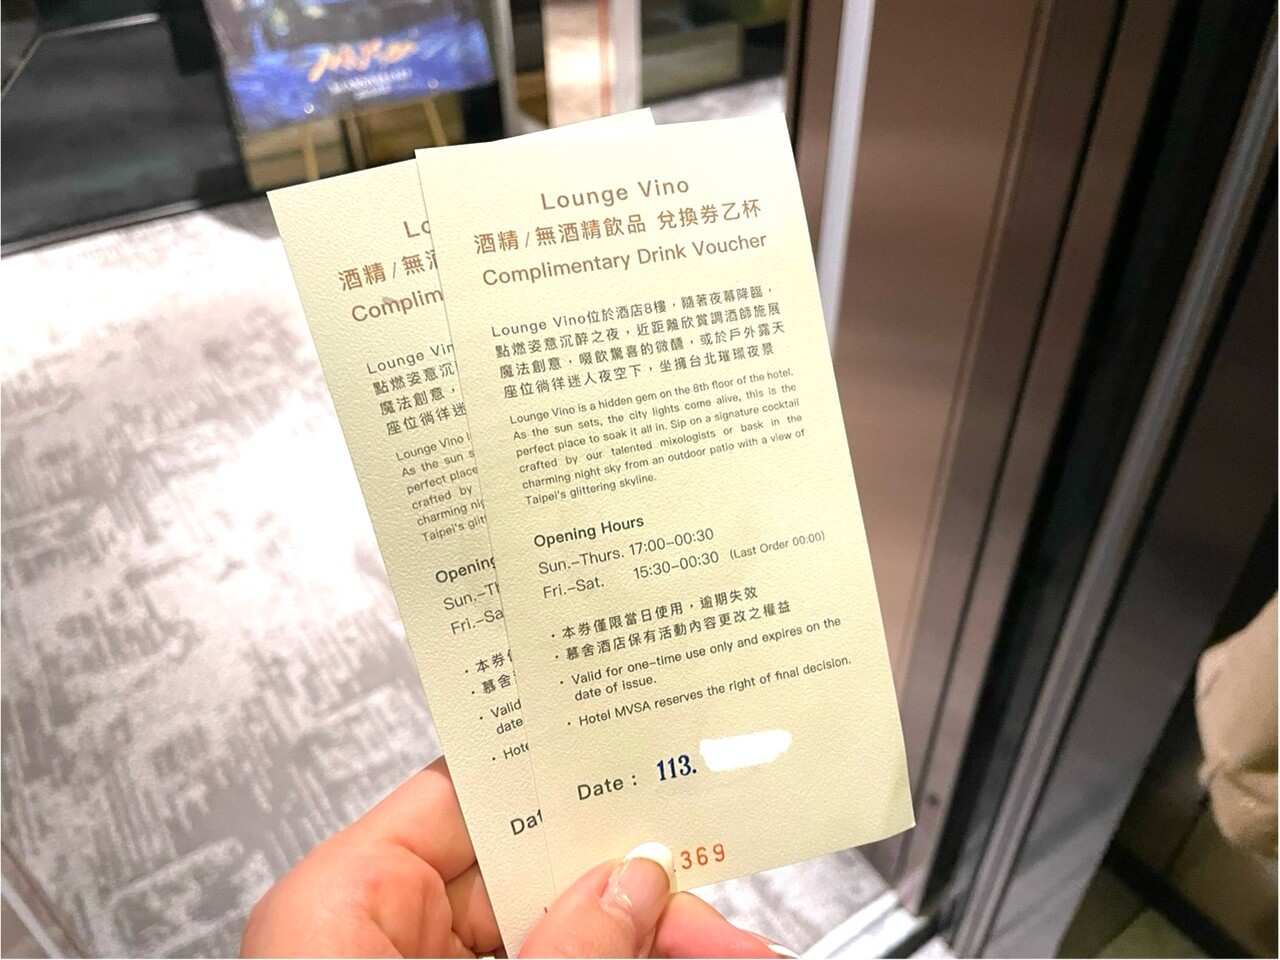 Lounge Vino
酒精/無酒精飲品 兌換券乙杯
Complimentary Drink Voucher
Lounge Vino位於酒店8樓，隨著夜幕降臨，
點燃姿意沉醉之夜，近距離欣賞調酒師施展
魔法創意，啜飲驚喜的微醺，或於戶外露天
座位徜徉迷人夜空下，坐擁台北璀璨夜景
Lounge Vino is a hidden gem on the 8th floor of the hotel.
As the sun sets, the city lights come alive, this is the
perfect place to soak it all in. Sip on a signature cocktail
crafted by our talented mixologists or bask in the
charming night sky from an outdoor patio with a view of
Taipei's glittering skyline.
Opening Hours
Sun.-Thurs. 17:00-00:30
Fri.-Sat. 15:30-00:30 (Last Order 00:00)
・本券僅限當日使用，逾期失效
・慕舍酒店保有活動內容更改之權益
・Valid for one-time use only and expires on the
date of issue.
・Hotel MVSA reserves the right of final decision.
Date： 113.
369
酒精/無
Complim
Lounge Vin
點燃姿意沉
魔法創意，
座位徜徉迷
Lounge Vino
As the sun s
perfect place
crafted by
charming nig
Taipei's glit
Opening
Sun.-Th
Fri.-Sa
・本券
・慕舍
・Valid
date
・Hote
Dat